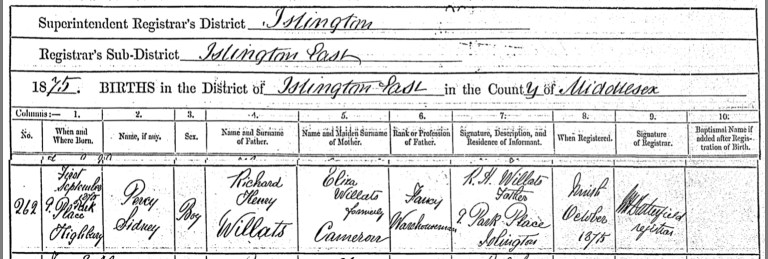 Superintendent Registrar's District Islington
Registrar's Sub-District Islington East
1875. BIRTHS in the District of Islington East in the County of Middlesex
Columns:— 1. 2. 3. 4. 5. 6. 7. 8. 9. 10.
No. When and Where Born. Name, if any. Sex. Name and Surname of Father. Name and Maiden Surname of Mother. Rank or Profession of Father. Signature, Description, and Residence of Informant. When Registered. Signature of Registrar. Baptismal Name if added after Registration of Birth.
262
First
September
1875
9 Park
Place
Highbury
Percy
Sidney
Boy
Richard
Henry
Willats
Eliza
Willats
formerly
Cameron
Fancy
Warehouseman
R. H. Willats
Father
9 Park Place
Islington
Ninth
October
1875
registrar